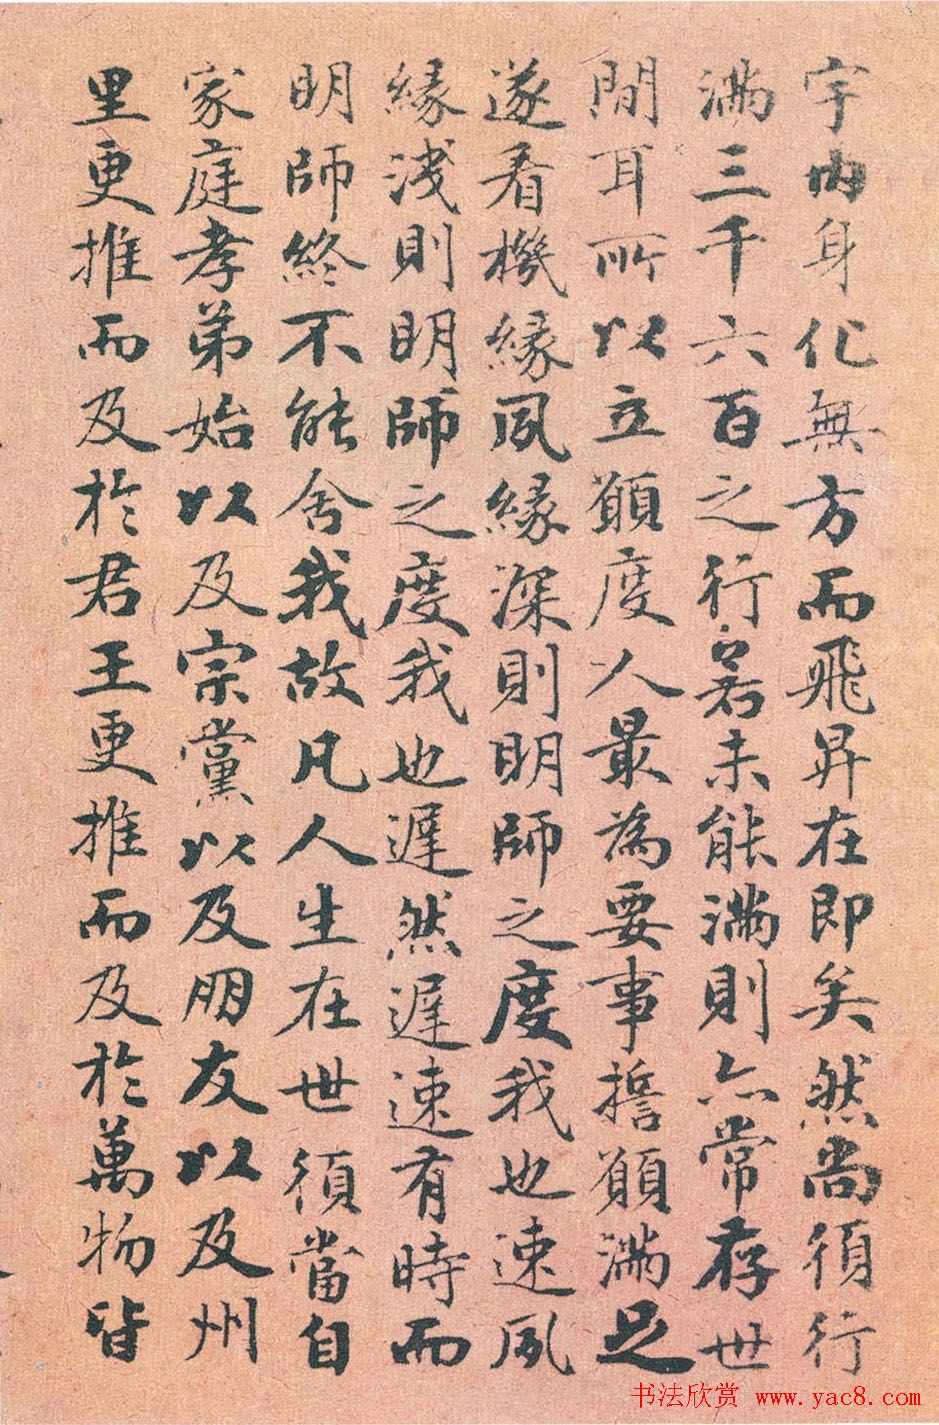 宇內身化無方而飛昇在即矣然尚須行
滿三千六百之行若未能滿則亦常存世
間耳所以立願度人最為要事誓願滿足
遂看機緣夙緣深則明師之度我也速夙
緣淺則明師之度我也遲然遲速有時而
明師終不能舍我故凡人生在世須當自
家庭孝弟始以及宗黨以及朋友以及州
里更推而及於君王更推而及於萬物皆
书法欣赏 www.yac8.com